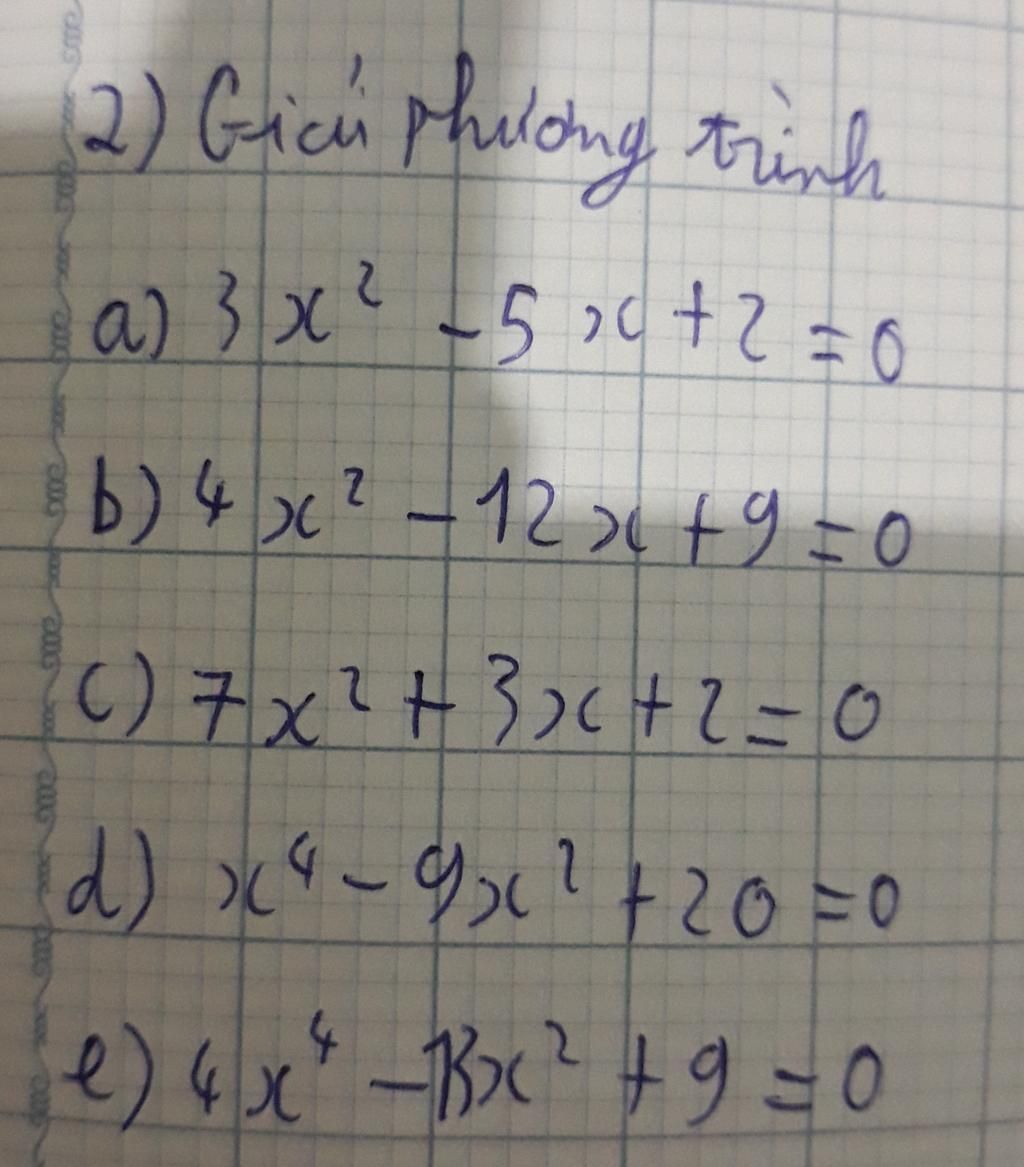 2) Giải phương trình
a) 3x² - 5x + 2 = 0
b) 4x² - 12x + 9 = 0
c) 7x² + 3x + 2 = 0
d) x⁴ - 9x² + 20 = 0
e) 4x⁴ - 13x² + 9 = 0